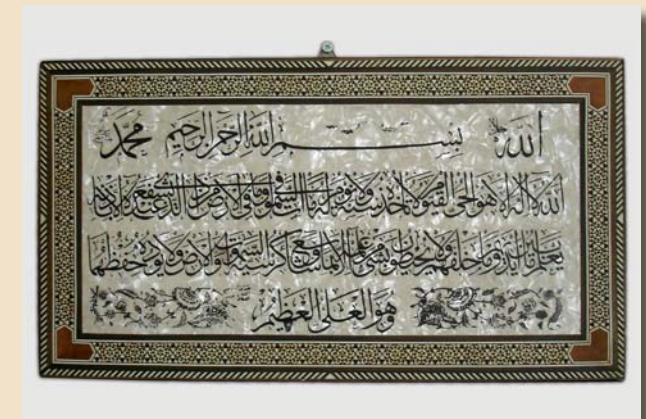 الله بسم الله الرحمن الرحيم محمد
الله لا اله الا هو الحي القيوم لا تأخذه سنة ولا نوم له ما في السموات وما في الارض من ذا الذي يشفع عنده الا باذنه
يعلم ما بين ايديهم وما خلفهم ولا يحيطون بشئ من علمه الا بما شاء وسع كرسيه السموات والارض ولا يؤده حفظهما
وهو العلي العظيم